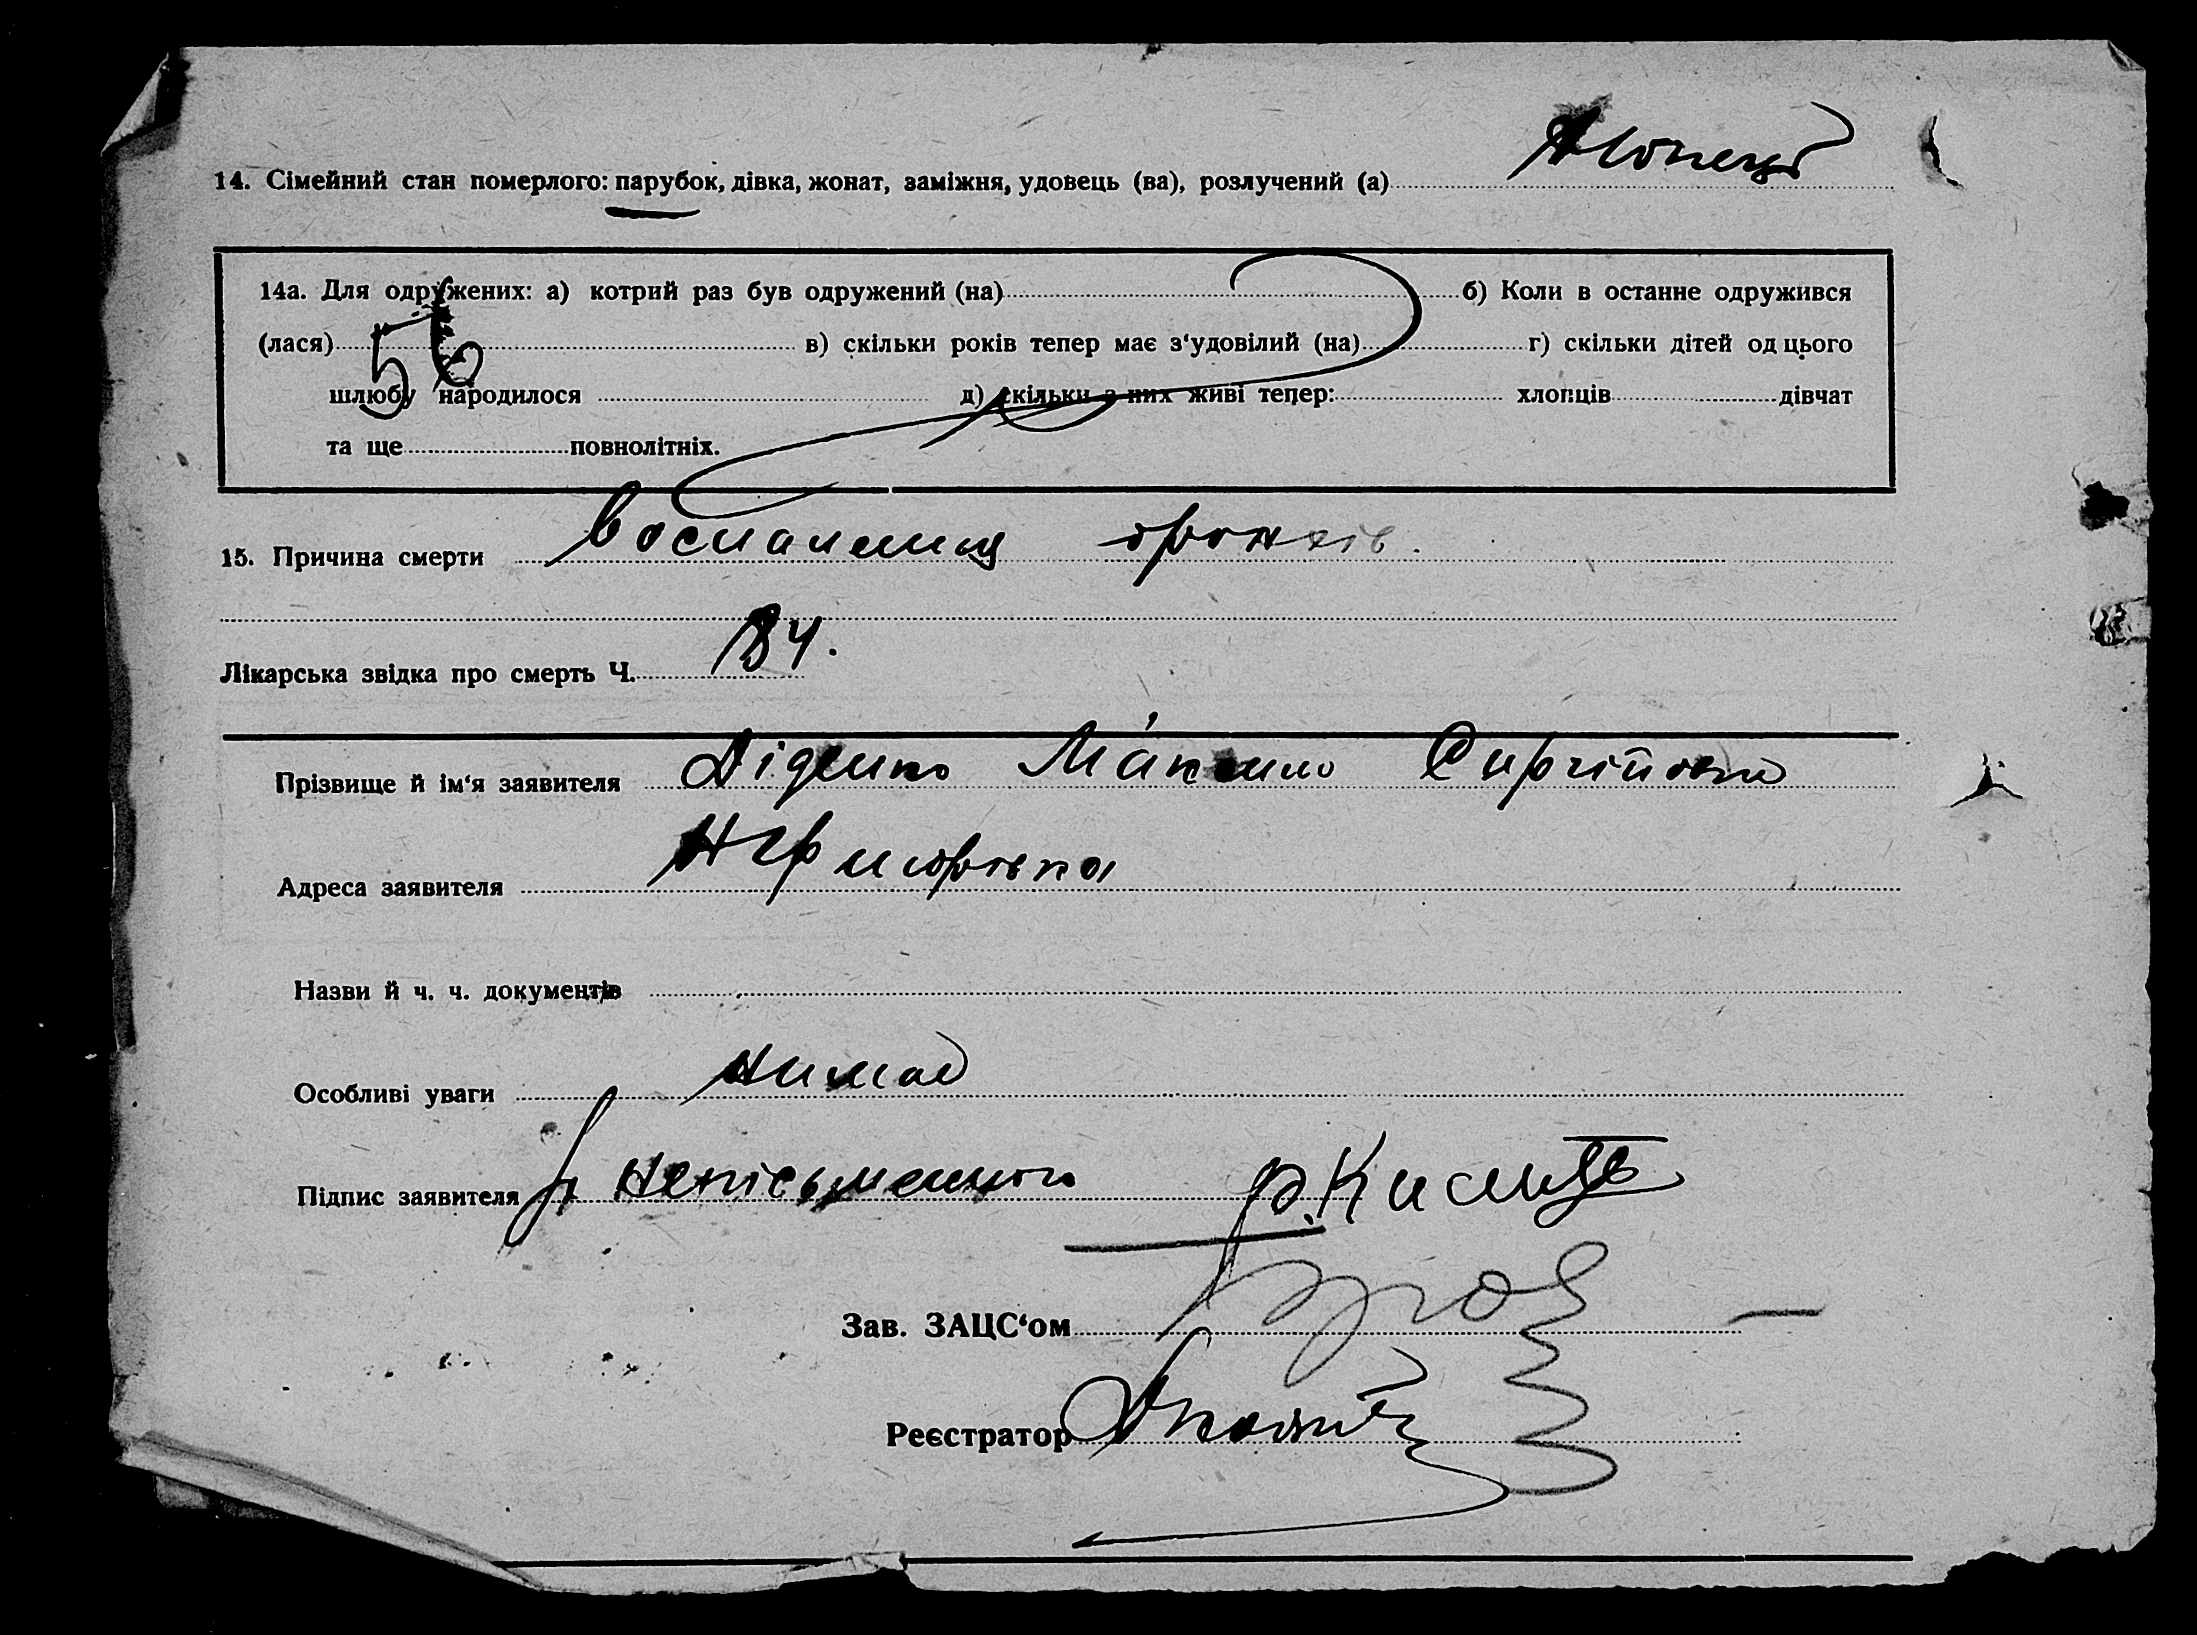 14. Сімейний стан померлого: парубок, дівка, жонат, заміжня, удовець (ва), розлучений (а)
14а. Для одружених: а) котрий раз був одружений (на) б) Коли в останне одружився
(лася) в) скільки років тепер має з‘удовілий (на) г) скільки дітей од цього
56
шлюбу народилося д) скільки з них живі тепер: хлопців дівчат
та ще повнолітніх.
15. Причина смерти воспаления бронхів.
Лікарська звідка про смерть Ч. 84.
Прізвище й ім‘я заявителя Діденко Максимо Сиргійович
Адреса заявителя
Назви й ч. ч. документів
Особливі уваги нимає
Підпис заявителя неписьменного
Зав. ЗАЦС‘ом
Реєстратор